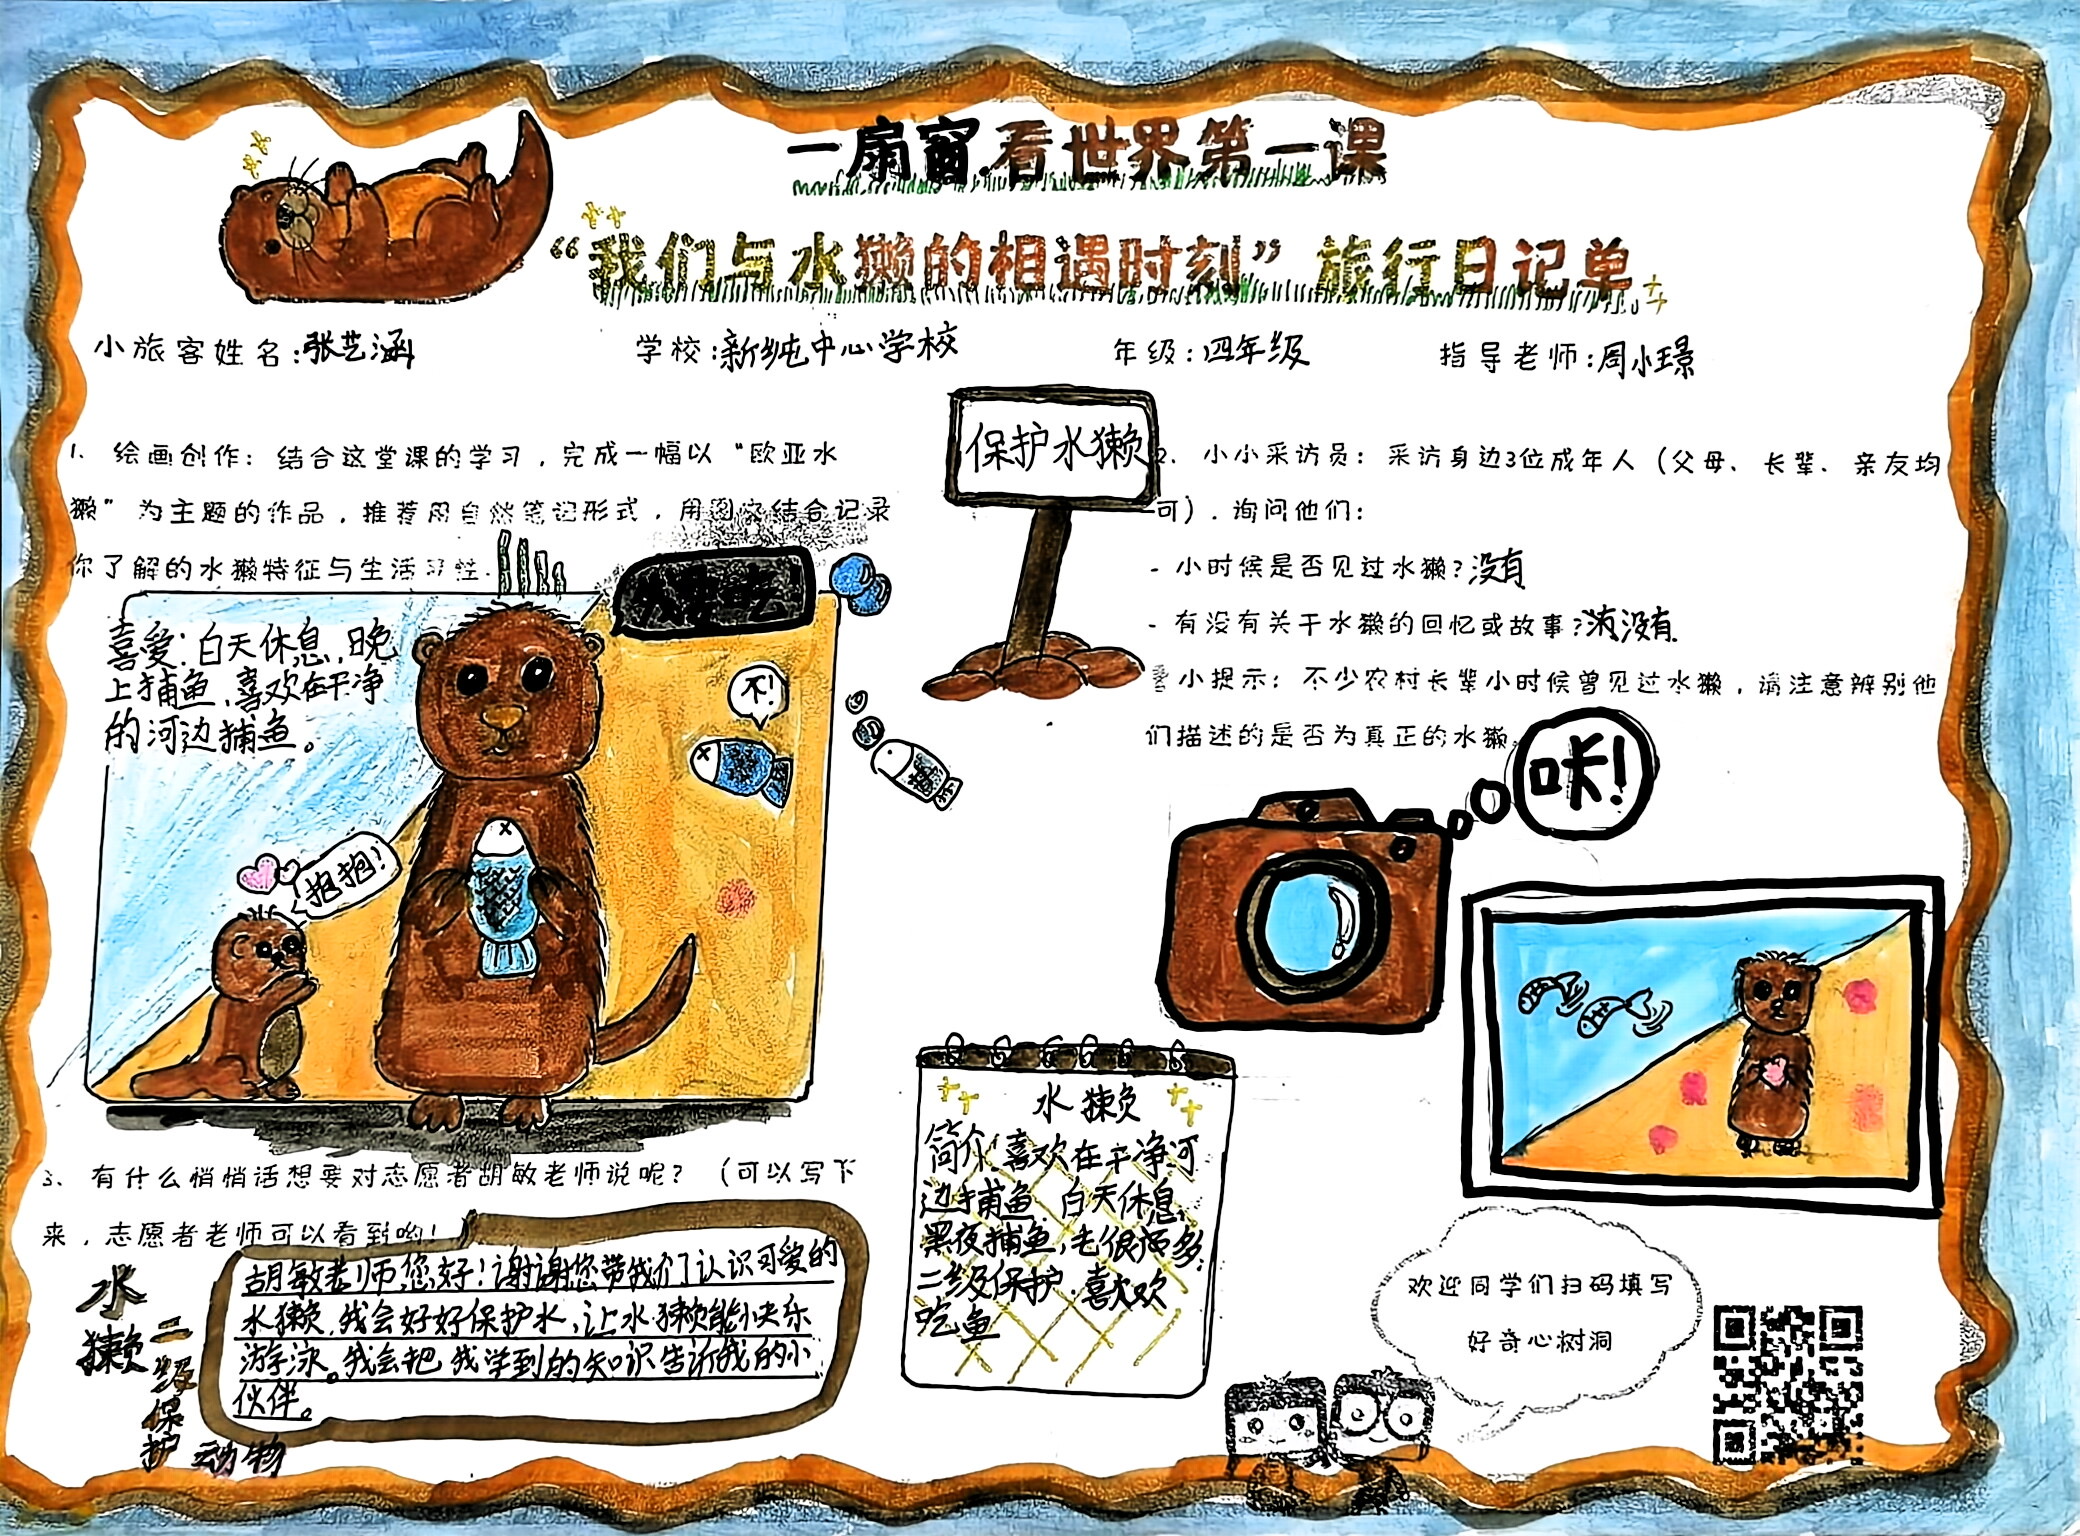 一扇窗.看世界第一课
“我们与水獭的相遇时刻”旅行日记单
小旅客姓名:张艺涵
学校:新纯中心学校
年级:四年级
指导老师:周小璟
1、绘画创作：结合这堂课的学习，完成一幅以“欧亚水
獭”为主题的作品，推荐用自然笔记形式，用图文结合记录
你了解的水獭特征与生活习性.
喜爱:白天休息,晚
上捕鱼,喜欢在干净
的河边捕鱼。
不!
抱抱!
保护水獭
2、小小采访员：采访身边3位成年人（父母、长辈、亲友均
可）.询问他们：
- 小时候是否见过水獭?没有
- 有没有关于水獭的回忆或故事?没有
小提示：不少农村长辈小时候曾见过水獭，请注意辨别他
们描述的是否为真正的水獭。
咔!
3、有什么悄悄话想要对志愿者胡敏老师说呢？（可以写下
来，志愿者老师可以看到哟！）
胡敏老师,您好!谢谢您带我们认识可爱的
水獭.我会好好保护水,让水獭能快乐
游泳。我会把我学到的知识告诉我的小
伙伴。
水獭
二级保护动物
水獭
简介:喜欢在干净河
边捕鱼.白天休息,
黑夜捕鱼,毛很多,
二级保护.喜欢
吃鱼
欢迎同学们扫码填写
好奇心树洞